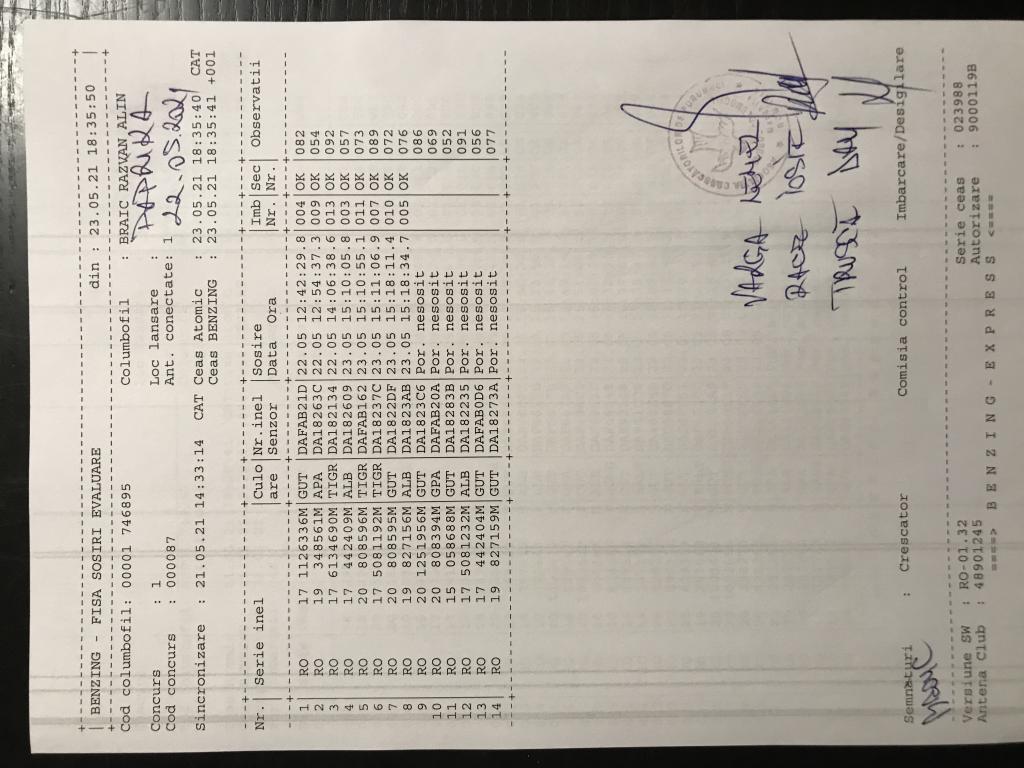 BENZING - FISA SOSIRI EVALUARE din : 23.05.21 18:35:50
Cod columbofil: 00001 746895 Columbofil : BRAIC RAZVAN ALIN
Concurs : 1 Loc lansare :
Cod concurs : 000087 Ant. conectate: 1 22.05.2021
Sincronizare : 21.05.21 14:33:14 CAT Ceas Atomic : 23.05.21 18:35:40 CAT
Ceas BENZING : 23.05.21 18:35:41 +001
Nr. Serie inel Culo Nr.inel Sosire Imb Sec Observatii
are Senzor Data Ora Nr. Nr.
1 RO 17 1126336M GUT DAFAB21D 22.05 12:42:29.8 004 OK 082
2 RO 19 348561M APA DA18263C 22.05 12:54:37.3 009 OK 054
3 RO 17 6134690M TIGR DA182134 22.05 14:06:38.6 013 OK 092
4 RO 17 442409M ALB DA182609 23.05 15:10:05.8 003 OK 057
5 RO 20 808596M TIGR DAFAB162 23.05 15:10:55.1 011 OK 073
6 RO 17 5081192M TIGR DA18237C 23.05 15:11:06.9 007 OK 089
7 RO 20 808595M GUT DA1822DF 23.05 15:18:11.4 010 OK 072
8 RO 19 827156M ALB DA1823AB 23.05 15:18:34.7 005 OK 076
9 RO 20 1251956M GUT DA1823C6 Por. nesosit 086
10 RO 20 808394M GPA DAFAB20A Por. nesosit 069
11 RO 15 058688M GUT DA18283B Por. nesosit 052
12 RO 17 5081232M ALB DA182235 Por. nesosit 091
13 RO 17 442404M GUT DAFAB0D6 Por. nesosit 056
14 RO 19 827159M GUT DA18273A Por. nesosit 077
VARGA
TRUSCA DAN
Semnaturi : Crescator Comisia control Imbarcare/Desigilare
Versiune SW : RO-01.32 Serie ceas : 023988
Antena Club : 48901245 Autorizare : 9000119B
====> B E N Z I N G - E X P R E S S <====